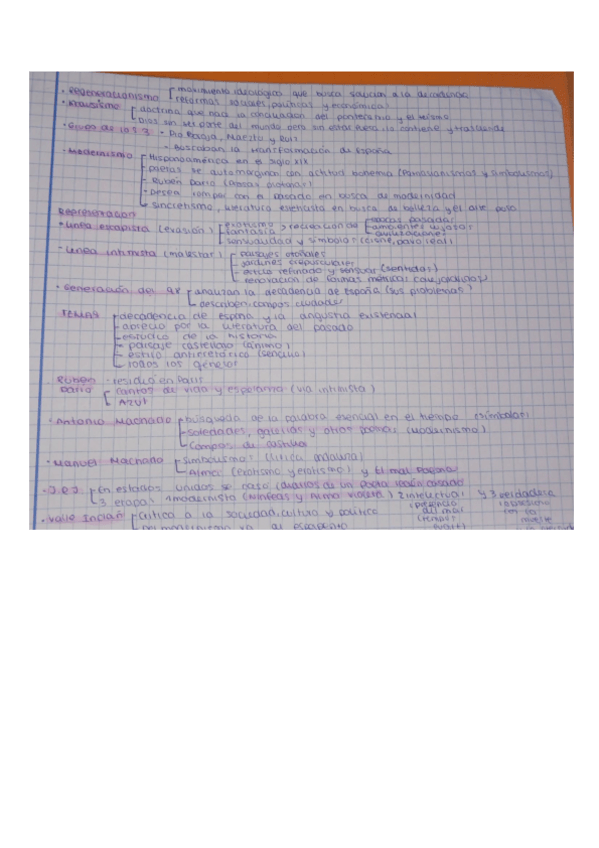 · Regeneracionismo [movimiento ideológico que busca solución a la decadencia
reformas sociales, políticas y económicas
· Krausismo [doctrina que hacía la conciliación del panteísmo y el teísmo
Dios sin ser parte del mundo pero sin estar fuera, lo contiene y trasciende
· Grupo de los 3: · Pío Baroja, Maeztu y Ruiz
- Buscaban la transformación de España
- Modernismo [Hispanoamérica en el siglo XIX
- poetas se automarginan con actitud bohemia (Parnasianismas y simbolismas)
- Rubén Darío (Prosas profanas)
- Desea romper con el pasado en busca de modernidad
- sincretismo, literatura esteticista en busca de belleza y el arte puro
Representación
· Línea escapista (evasión) [exotismo > recreación de [épocas pasadas
fantasía ambientes lujosos
sensualidad y símbolos (cisne, pavo real) civilizaciones
- Línea intimista (malestar) [paisajes otoñales
jardines crepusculares
estilo refinado y sensual (sentidos)
renovación de formas métricas
· Generación del 98 [analizan la decadencia de España (sus problemas)
describen campos, ciudades
TEMAS [decadencia de España y la angustia existencial
- aprecio por la literatura del pasado
- estudio de la historia
- paisaje castellano (ánimo)
- estilo antirretórico (sencillo)
- todos los géneros
RUBÉN · residió en París
DARÍO [cantos de vida y esperanza (vía intimista)
AZUL
· Antonio Machado [búsqueda de la palabra esencial en el tiempo (símbolos)
soledades, galerías y otros poemas (modernismo)
Campos de Castilla
· Manuel Machado [simbolismo: (lírica andaluza)
Alma: (exotismo y erotismo) y El mal Poema
· J.R.J [En estados unidos se casó (diarios de un poeta recién casado
3 etapas: 1 modernista (ninfeas y alma violeta) 2 intelectual y 3 verdadera
· Valle Inclán [crítica a la sociedad, cultura y política
Del modernismo va al esperpento